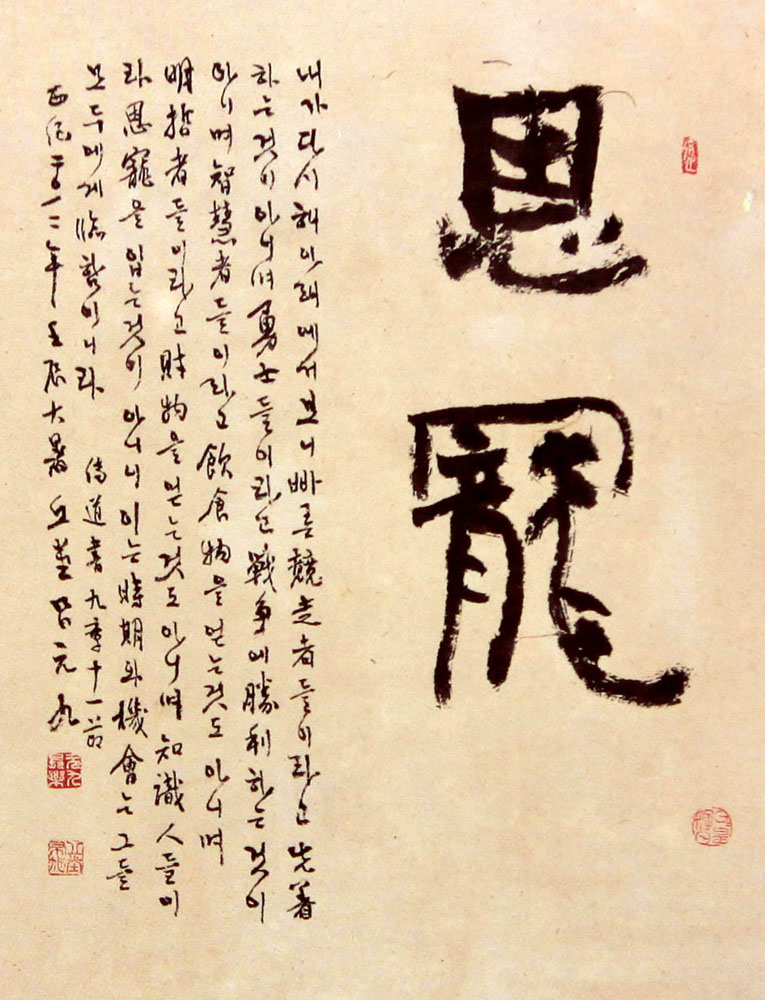 恩
寵
내가 다시 해 아래에서 보니 빠른 競走者들이라고 先着
하는 것이 아니며 勇士들이라고 戰爭에 勝利하는 것이
아니며 智慧者들이라고 飮食物을 얻는 것도 아니며
明哲者들이라고 財物을 얻는 것도 아니며 知識人들이
라 恩寵을 입는 것이 아니니 이는 時期와 機會는 그들
모두에게 臨함이니라 傳道書 九章 十一節
西紀二〇一二年 壬辰 大暑 丘堂 呂元九